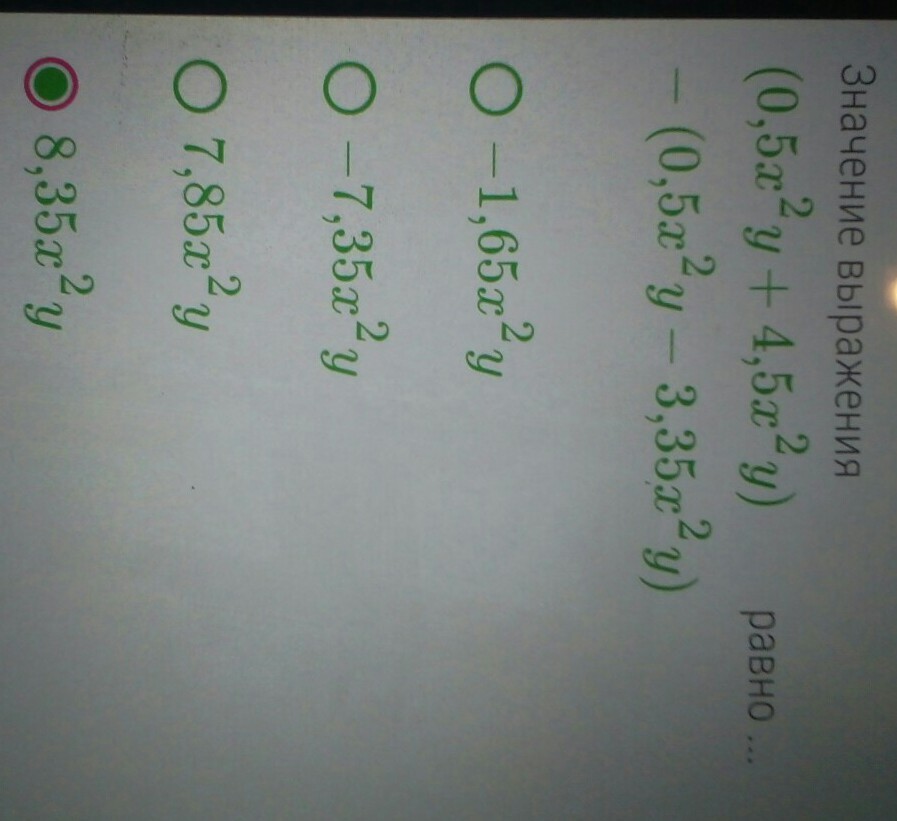 Значение выражения
(0,5x²y + 4,5x²y)
− (0,5x²y − 3,35x²y) равно ...
−1,65x²y
−7,35x²y
7,85x²y
8,35x²y